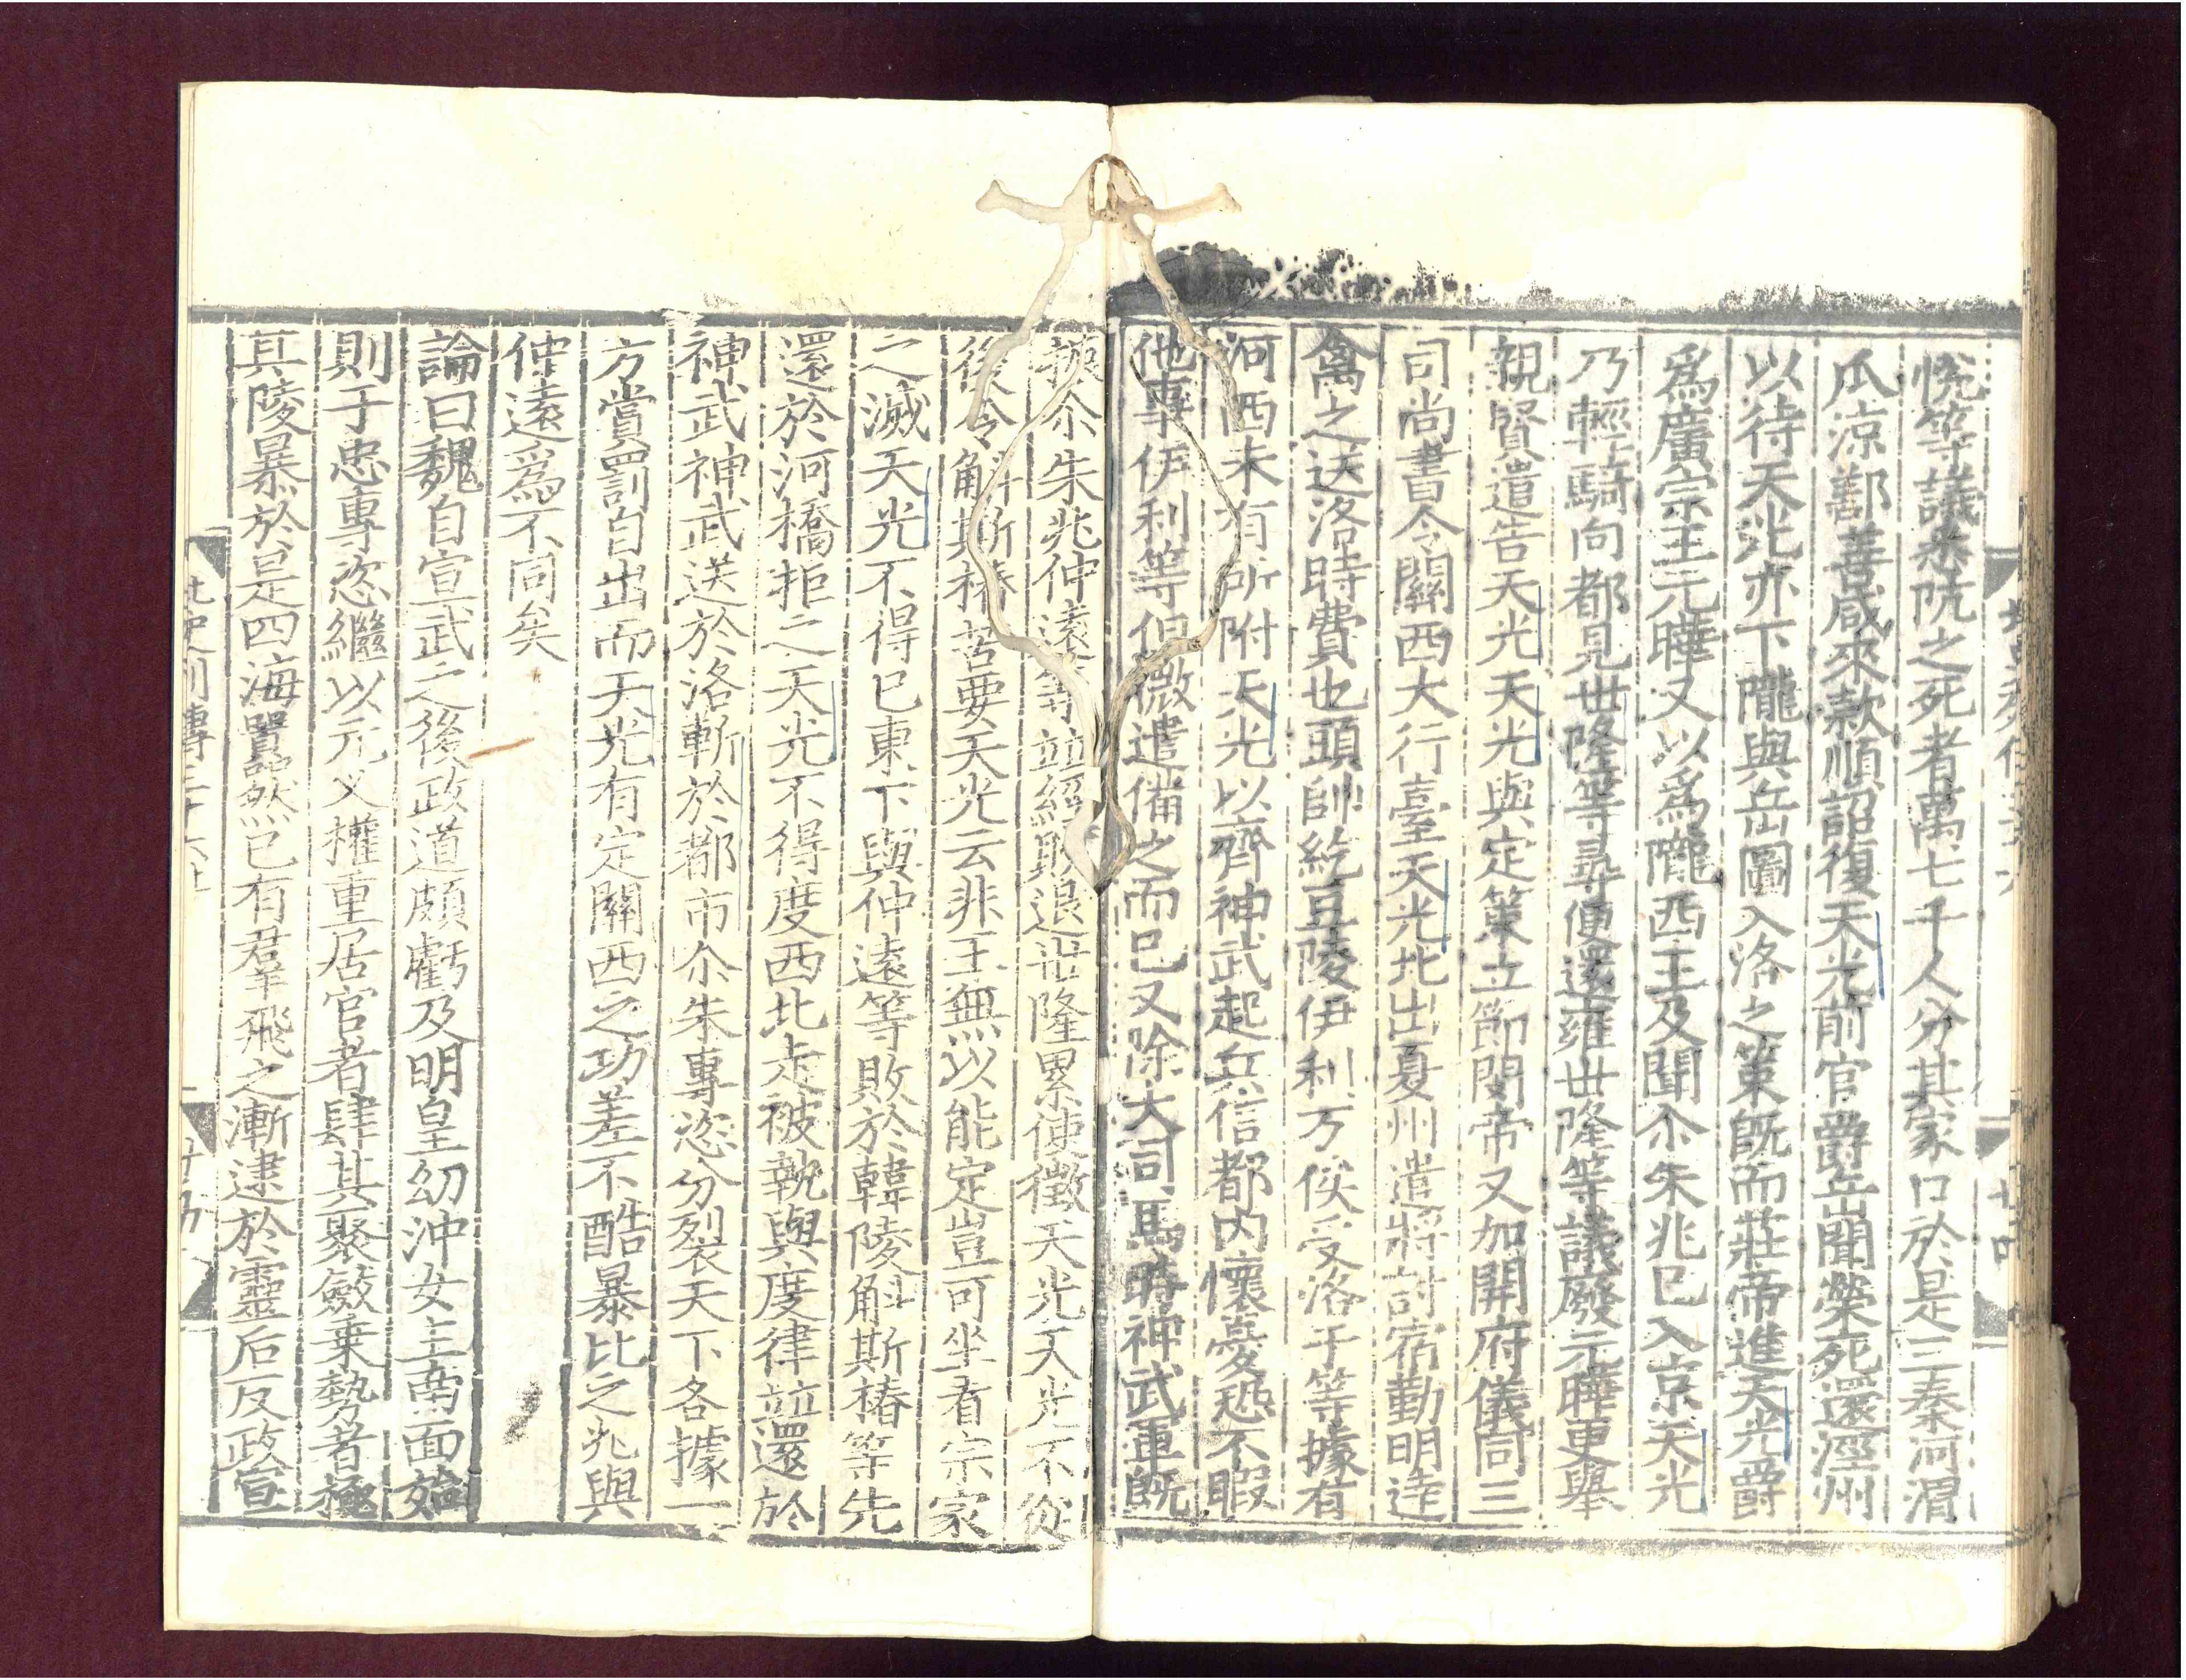 悅等議悉阬之死者萬七千人分其家口於是三秦河渭
瓜涼鄯善咸來款順詔復天光前官爵岳聞榮死還涇州
以待天光亦下隴與岳圖入洛之策既而莊帝進天光爵
爲廣宗王元曄又以爲隴西王及聞尒朱兆已入京天光
乃輕騎向都見世隆等尋便還雍世隆等議廢元曄更舉
親賢遣告天光天光與定策立節閔帝又加開府儀同三
司尚書令關西大行臺天光北出夏州遣將討宿勤明達
禽之送洛時費也頭帥紇豆陵伊利万俟受洛干等據有
河西未有所附天光以齊神武起兵信都內懷憂恐不暇
他事伊利等但微遣備之而已又除大司馬時神武軍既
振尒朱兆仲遠等竝經敗退世隆累使徵天光天光不從
後令斛斯椿苦要天光云非王無以能定豈可坐看宗家
之滅天光不得已東下與仲遠等敗於韓陵斛斯椿等先
還於河橋拒之天光不得度西北走被執與度律竝還於
神武神武送於洛斬於都市尒朱專恣分裂天下各據一
方賞罰自出而天光有定關西之功差不酷暴比之兆與
仲遠爲不同矣
論曰魏自宣武之後政道頗虧及明皇幼沖女主南面始
則于忠專恣繼以元义權重居官者肆其聚斂乗勢者極
其陵暴於是四海囂然已有羣飛之漸逮於靈后反政宣
北史列傳三十六